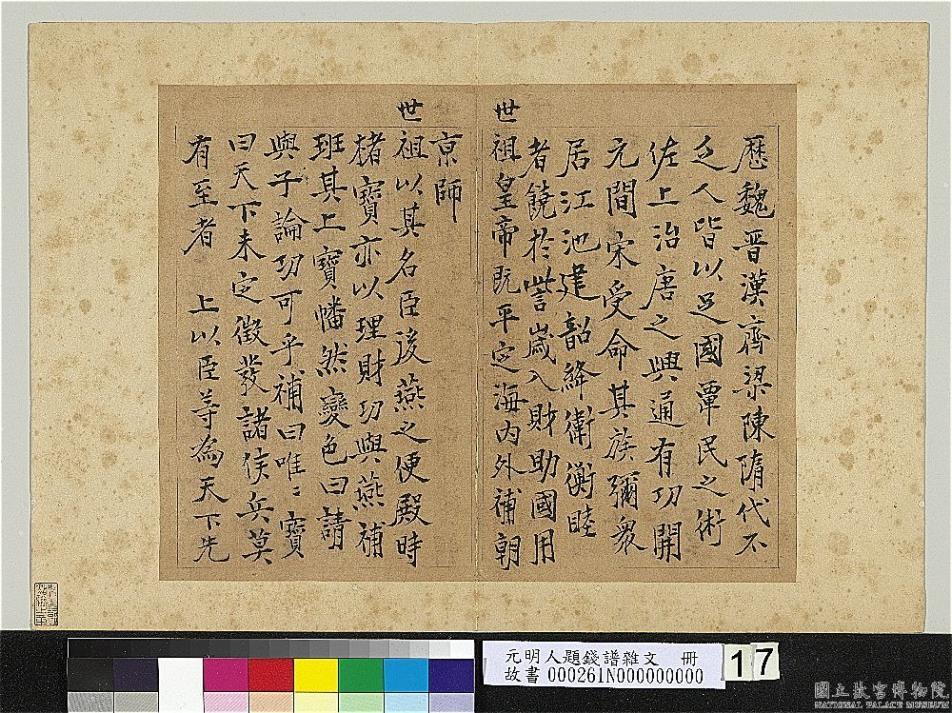 歷魏晋漢齊梁陳隋代不
乏人皆以足國覃民之術
佐上治唐之興通有功開
元間宋受命其族彌衆
居江池建韶絳衛衡睦
者饒於訾歲入財助國用
世祖皇帝既平定海内外補朝
京師
世祖以其名臣後燕之便殿時
楮寶亦以理財功與燕補
班其上寶幡然變色曰請
與子論功可乎補曰唯〻寶
曰天下未定徵發諸侯兵莫
有至者 上以臣等為天下先
元明人題錢譜雜文 冊
故書 000261N000000000
17
國立故宮博物院
NATIONAL PALACE MUSEUM